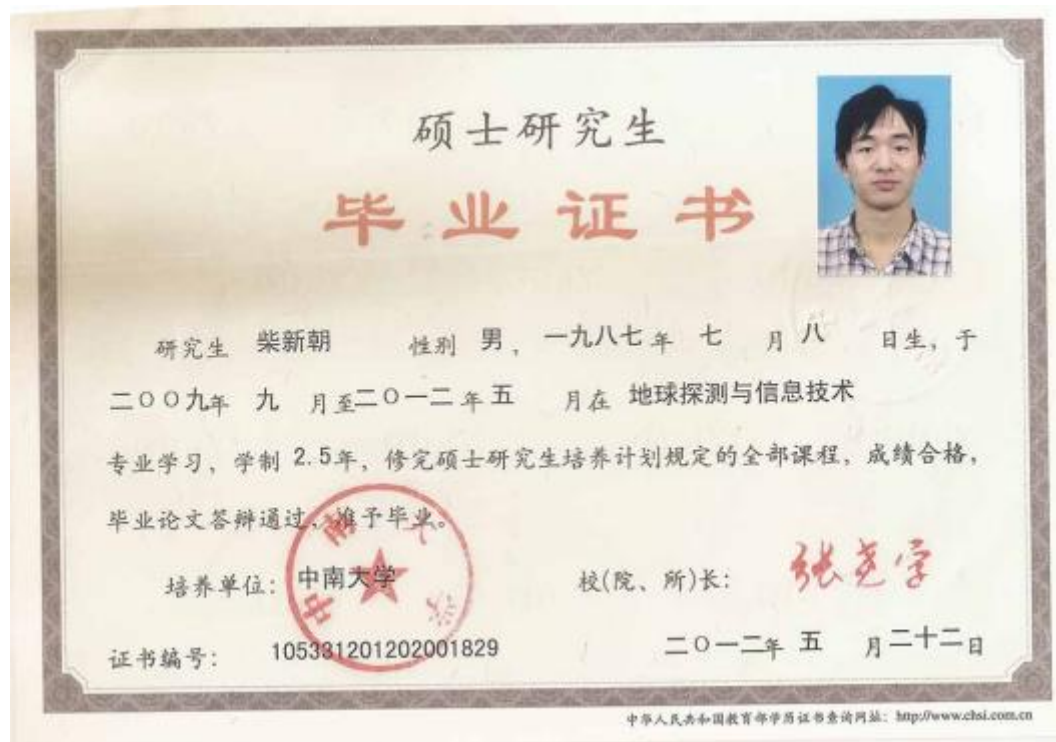 硕士研究生
毕业证书
研究生 柴新朝 性别 男，一九八七年 七 月 八 日生，于
二〇〇九年 九 月至二〇一二年 五 月在 地球探测与信息技术
专业学习，学制 2.5年，修完硕士研究生培养计划规定的全部课程，成绩合格，
毕业论文答辩通过，准予毕业。
中南大学
培养单位：中南大学 校(院、所)长：张尧学
证书编号：105331201202001829 二〇一二年 五 月二十二日
中华人民共和国教育部学历证书查询网址：http://www.chsi.com.cn